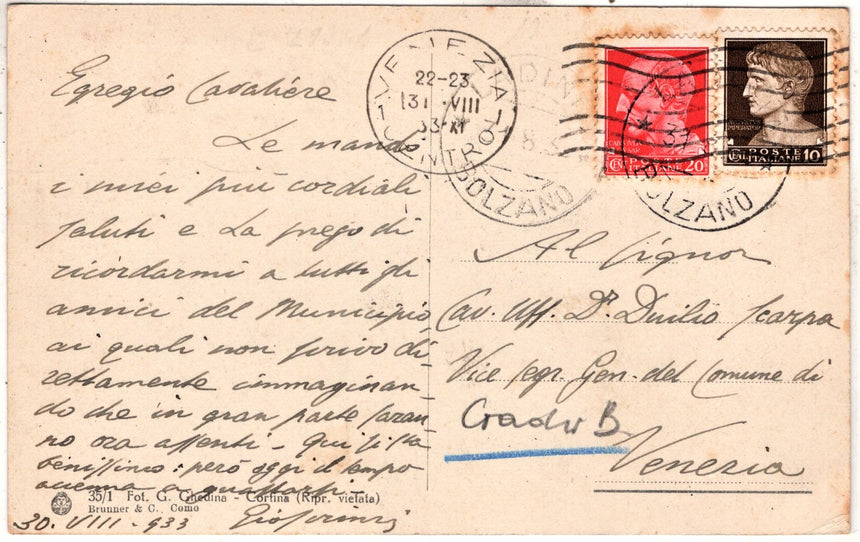 Egregio Cavaliere
Le mando
i miei più cordiali
saluti e La prego di
ricordarmi a tutti gli
amici del Municipio
ai quali non scrivo di-
rettamente immaginan-
do che in gran parte saran-
no ora assenti - Qui si sta
benissimo: però oggi il tempo
accenna a guastarsi -
35/1 Fot. G. Ghedina - Cortina (Ripr. vietata)
Brunner & C., Como
30. VIII - 933
VENEZIA
22-23
31 VIII
33-XI
CENTRO
BOLZANO
33
BOLZANO
CENT. 20
POSTE ITALIANE
CENT. 10
POSTE ITALIANE
Al Signor
Cav. Uff. Dr. Duilio Scarpa
Vice Segr. Gen. del Comune di
B
Venezia